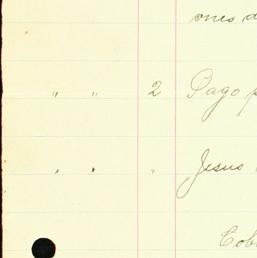 ones
" " 2 Pago p
" " " Jesus
Cob